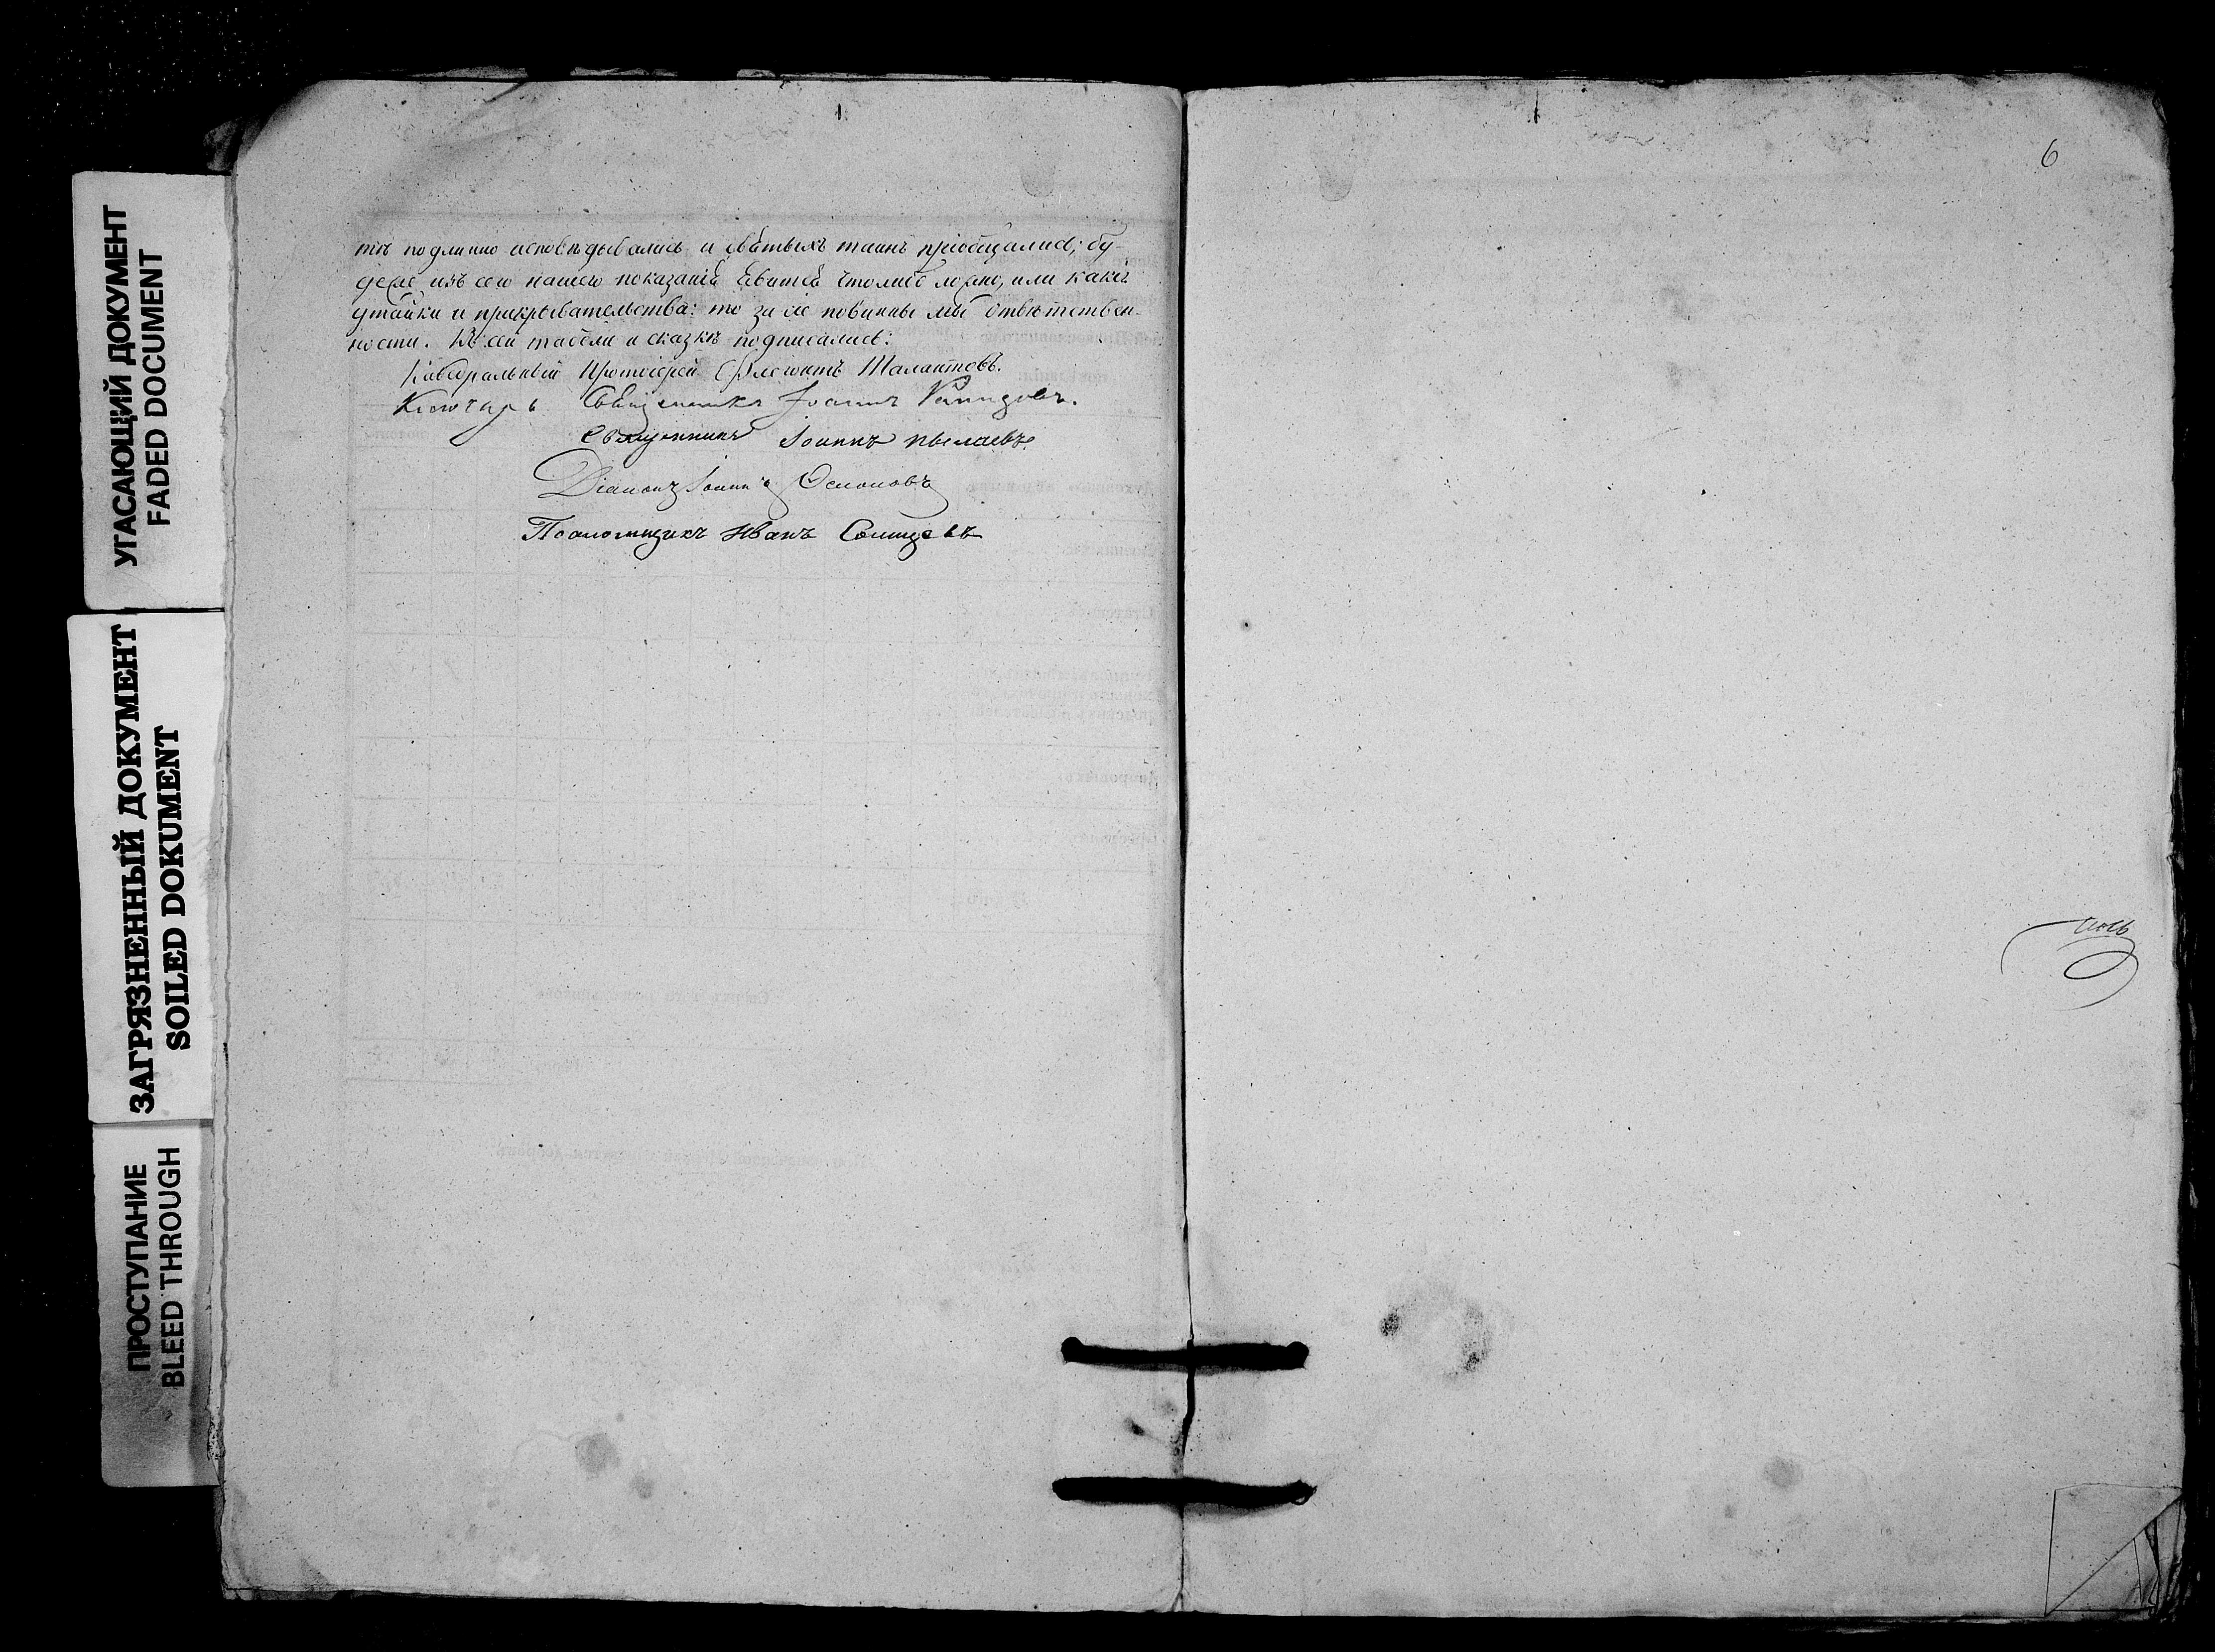 УГАСАЮЩИЙ ДОКУМЕНТ
FADED DOCUMENT
ЗАГРЯЗНЕННЫЙ ДОКУМЕНТ
SOILED DOKUMENT
ПРОСТУПАНИЕ
BLEED THROUGH
тѣ подлинно исповѣдывались и святыхъ таинъ пріобщались; бу-
деже изъ сего нашего показанія явится что либо ложно, или какія
утайки и прикрывательства: то за сіе повинны мы отвѣтствен-
ности. Къ сей табели и сказкѣ подписались:
Каѳедральный Протоіерей Флегонтъ Талантовъ.
Ключарь Священникъ Іоаннъ
Священникъ Іоаннъ Пылаевъ
Діаконъ Іоаннъ
Псаломщикъ Иванъ
6